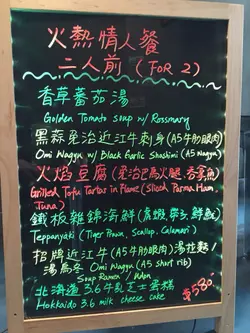 火熱情人餐
二人前 (FOR 2)
香草蕃茄湯
Golden Tomato soup w/ Rossmary
黑蒜免治近江牛刺身 (A5牛肋眼肉)
Omi Wagyu w/ Black Garlic Shashimi (A5 Wagyu)
火焰豆腐 (免治巴馬火腿、吞拿魚)
Grilled Tofu Tartar in Flame (Sliced Parma Ham, Tuna)
鐵板雜錦海鮮 (虎蝦、帶子、鮮魷)
Teppanyaki (Tiger Prawn, Scallop, Calamari)
招牌近江牛 (A5牛肋眼肉) 湯拉麵/
湯烏冬 Omi Wagyu (A5 short rib)
Soup Ramen / Udon
北海道3.6牛乳芝士蛋糕
Hokkaido 3.6 milk cheese cake
$580